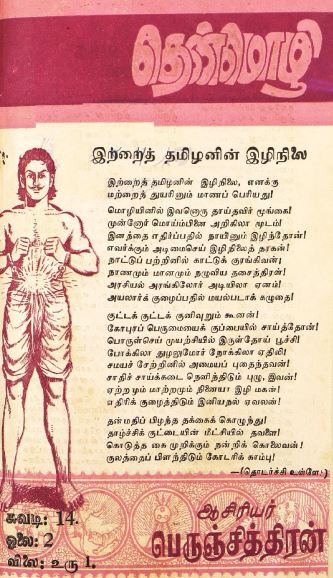 தென்மொழி
இற்றைத் தமிழனின் இழிநிலை
இற்றைத் தமிழனின் இழிநிலை, எனக்கு
மற்றைத் துயரினும் மாணப் பெரியது!
மொழியினில் இவனொரு தாய்தவிர் மூங்கை!
முன்னோர் மொய்ம்பினை அறிகிலா மூடம்!
இனத்தை எதிர்ப்பதில் நாயினும் இழிந்தோன்!
எவர்க்கும் அடிமைசெய் இழிதிலைத் தரகன்!
நாட்டுப் பற்றினில் காட்டுக் குரங்கிவன்;
நாணமும் மானமும் நழுவிய தசைத்திரன்!
அரசியல் அரங்கிலோர் அடியிலா ஏனம்!
அயலார்க் குழைப்பதில் மயல்படாக் கழுதை!
குட்டக் குட்டக் குனிவுறும் கூனன்!
கோபுரப் பெருமையைக் குப்பையில் சாய்த்தோன்!
பொருள்செய் முயற்சியில் இருள்தோய் பூச்சி!
போக்கிலா துழலுமோர் நோக்கிலா ஏதிலி!
சமயச் சேற்றினில் அமையப் புதைந்தவன்!
சாதிச் சாய்க்கடை நெளிந்திடும் புழு, இவன்!
ஏற்றமும் மாற்றமும் நினையா இழி மகன்!
எதிரிக் குழைத்திடும் இனியநல் ஏவலன்!
தன்மதிப் பிழந்த தக்கைக் கொழுந்து!
தாழ்ச்சிக் குட்டையின் மீட்சியில் தவளை!
கொடுத்த கை முறிக்கும் நன்றிக் கொலைவன்!
குலத்தைப் பிளந்திடும் கோடரிக் காம்பு!
—(தொடர்ச்சி உள்ளே)
சுவடி: 14.
ஓலை: 2
விலை: உரு 1.
ஆசிரியர்
பெருஞ்சித்திரன்